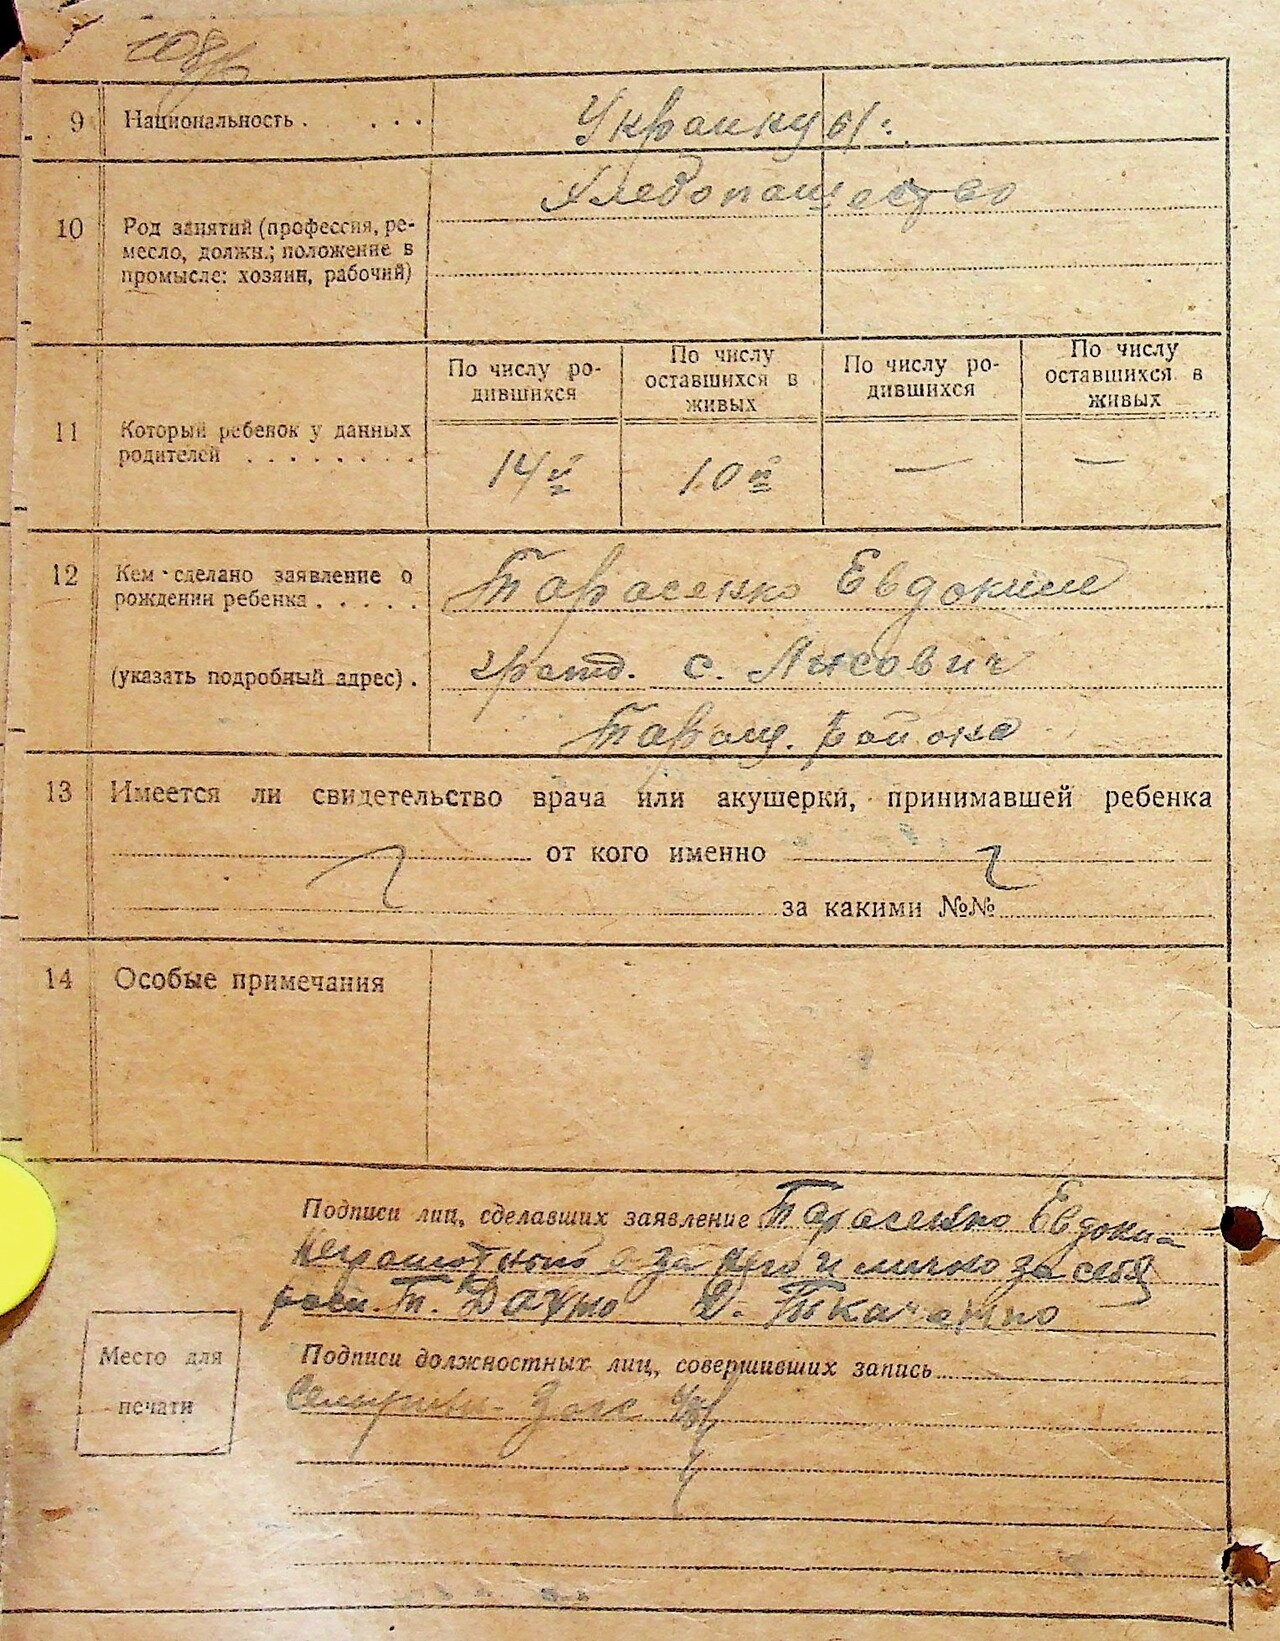 9 Национальность . . . . Украинцы
Хлебопашество
10 Род занятий (профессия, ре-
месло, должн.; положение в
промысле: хозяин, рабочий)
По числу ро-
дившихся
По числу
оставшихся в
живых
По числу ро-
дившихся
По числу
оставшихся в
живых
11 Который ребенок у данных
родителей . . . . . . . .
14й 10й — —
12 Кем сделано заявление о
рождении ребенка . . . . . Тарасенко Евдоким
(указать подробный адрес) . гр. с. Лисович
Таращ. района
13 Имеется ли свидетельство врача или акушерки, принимавшей ребенка
от кого именно
за какими №№
14 Особые примечания
Подписи лиц, сделавших заявление Тарасенко Евдоки-
неграмотный а за него и лично за себя
расп. Т. Д. Ткаченко
Место для
печати
Подписи должностных лиц, совершивших запись